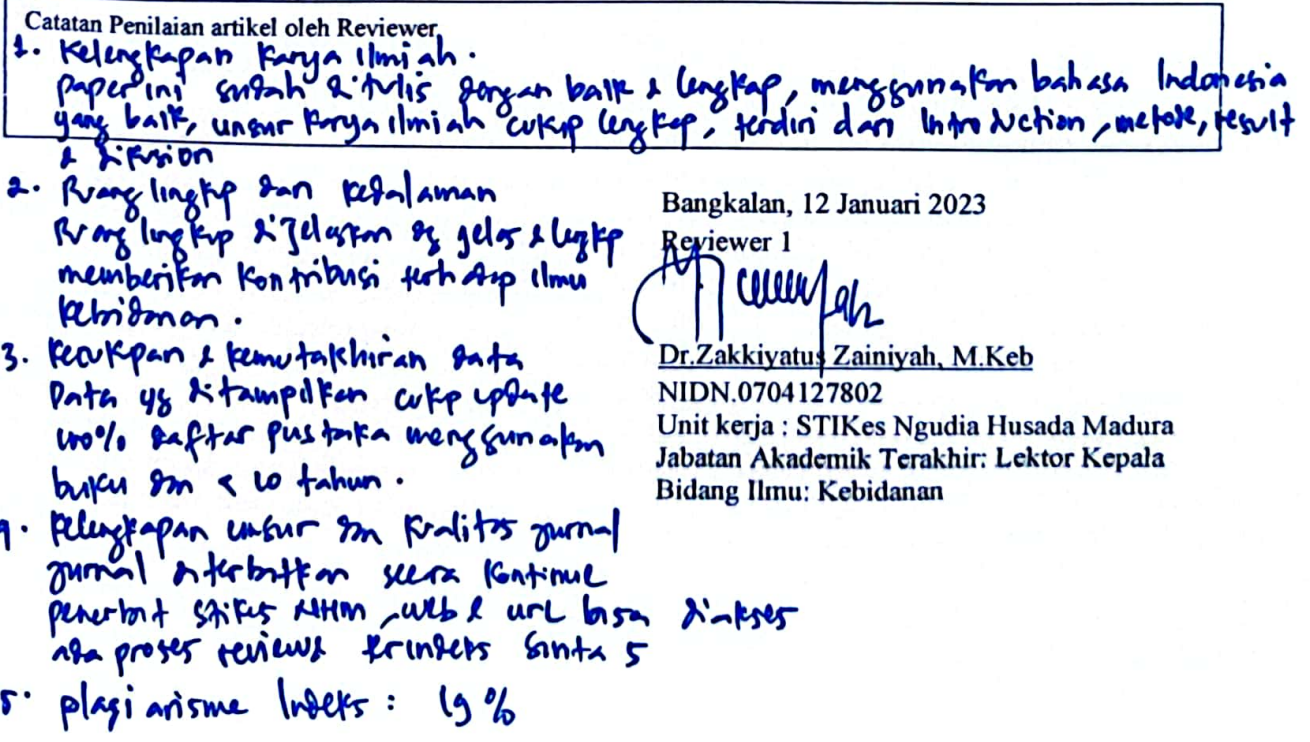 Catatan Penilaian artikel oleh Reviewer
1. Kelengkapan Karya Ilmiah.
paper ini sudah ditulis dengan baik & lengkap, menggunakan bahasa Indonesia
yang baik, unsur karya ilmiah cukup lengkap, terdiri dari Introduction, metode, result
& diskusion
2. Ruang lingkup dan kedalaman
Ruang lingkup dijelaskan dg jelas & lengkp
memberikan kontribusi terhadap ilmu
kebidanan.
3. Kecukpan & kemutakhiran data
Data yg ditampilkan cukp update
100% daftar pustaka menggunakan
buku dm < 10 tahun.
4. Kelengkapan unsur dm kualitas jurnal
jurnal diterbitkan secara kontinue
penerbit stikes NHM, web & url bisa diakses
ada proses review & terindeks Sinta 5
5. plagiarisme Indeks : 19 %
Bangkalan, 12 Januari 2023
Reviewer 1
Dr.Zakkiyatus Zainiyah, M.Keb
NIDN.0704127802
Unit kerja : STIKes Ngudia Husada Madura
Jabatan Akademik Terakhir: Lektor Kepala
Bidang Ilmu: Kebidanan